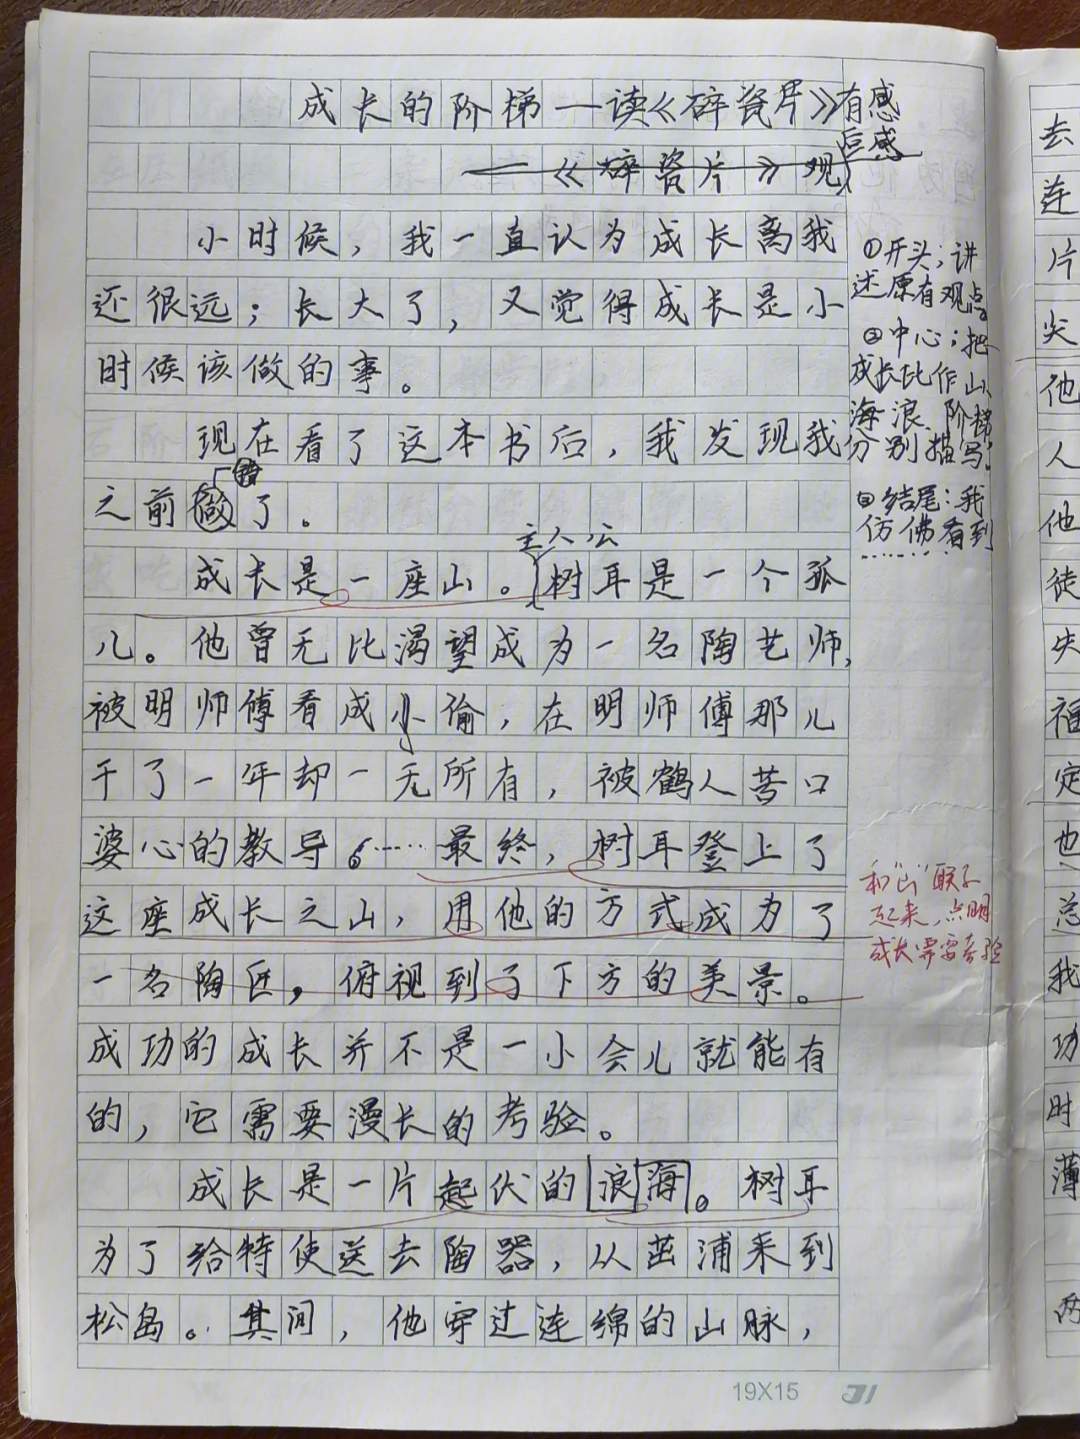 成长的阶梯——读《碎瓷片》有感
——《碎瓷片》观后感
小时候，我一直认为成长离我
还很远；长大了，又觉得成长是小
时候该做的事。
现在看了这本书后，我发现我
错
之前做了。
主人公
成长是一座山。树耳是一个孤
儿。他曾无比渴望成为一名陶艺师，
被明师傅看成小偷，在明师傅那儿
干了一年却一无所有，被鹤人苦口
婆心的教导。……最终，树耳登上了
这座成长之山，用他的方式成为了
一名陶匠，俯视到了下方的美景。
成功的成长并不是一小会儿就能有
的，它需要漫长的考验。
成长是一片起伏的浪海。树耳
为了给特使送去陶器，从茁浦来到
松岛。其间，他穿过连绵的山脉，
①开头；讲
述原有观点。
②中心；把
成长比作山、
海浪、阶梯
分别描写。
③结尾：我
仿佛看到
……
和“山”联系
起来，点明
成长需要考验
19X15
去
连
片
尖
他
人
他
徒
失
福
定
也
总
我
功
时
薄
两